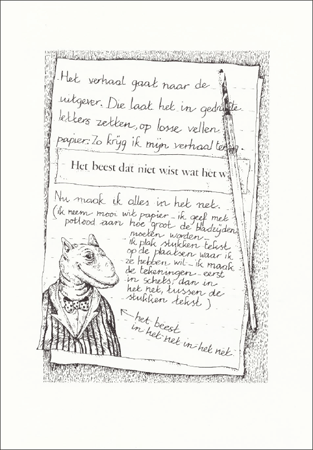 Het verhaal gaat naar de
uitgever. Die laat het in gedrukte
letters zetten, op losse vellen
papier. Zo krijg ik mijn verhaal terug.
Het beest dat niet wist wat het w
Nu maak ik alles in het net.
(Ik neem mooi wit papier - ik geef met
potlood aan hoe groot de bladzijden
moeten worden -
Ik plak stukken tekst
op de plaatsen waar ik
ze hebben wil - ik maak
de tekeningen - eerst
in schets, dan in
het net, tussen de
stukken tekst)
het beest
in het net in het net